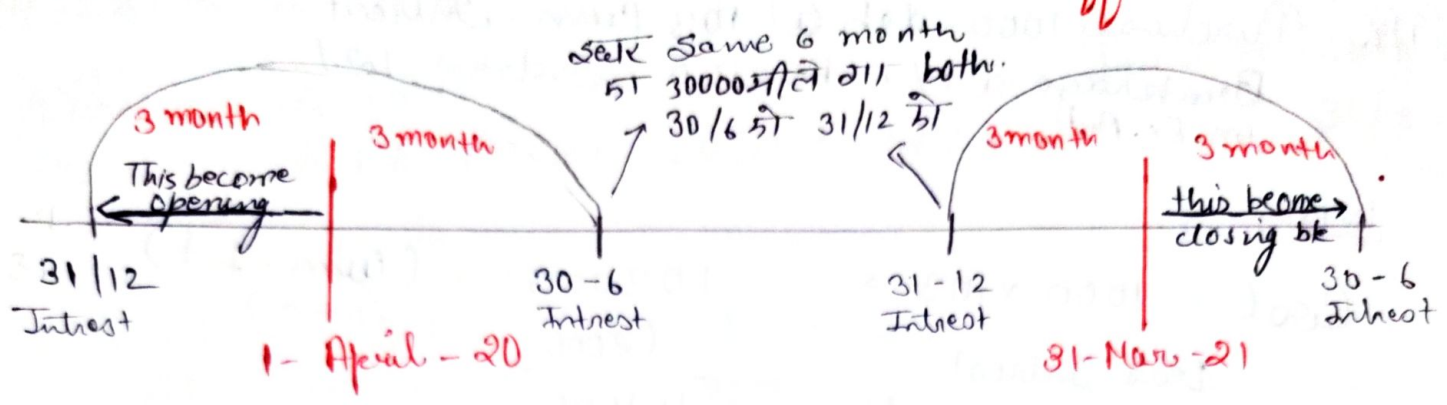 same 6 month
का 30000 मीलेगा both.
30/6 को 31/12 को
3 month
3 month
3 month
3 month
This become
opening
this beome
closing bk
31/12
Intrest
30-6
Intrest
31-12
Intrest
30-6
Intrest
1- April-20
31-Mar-21